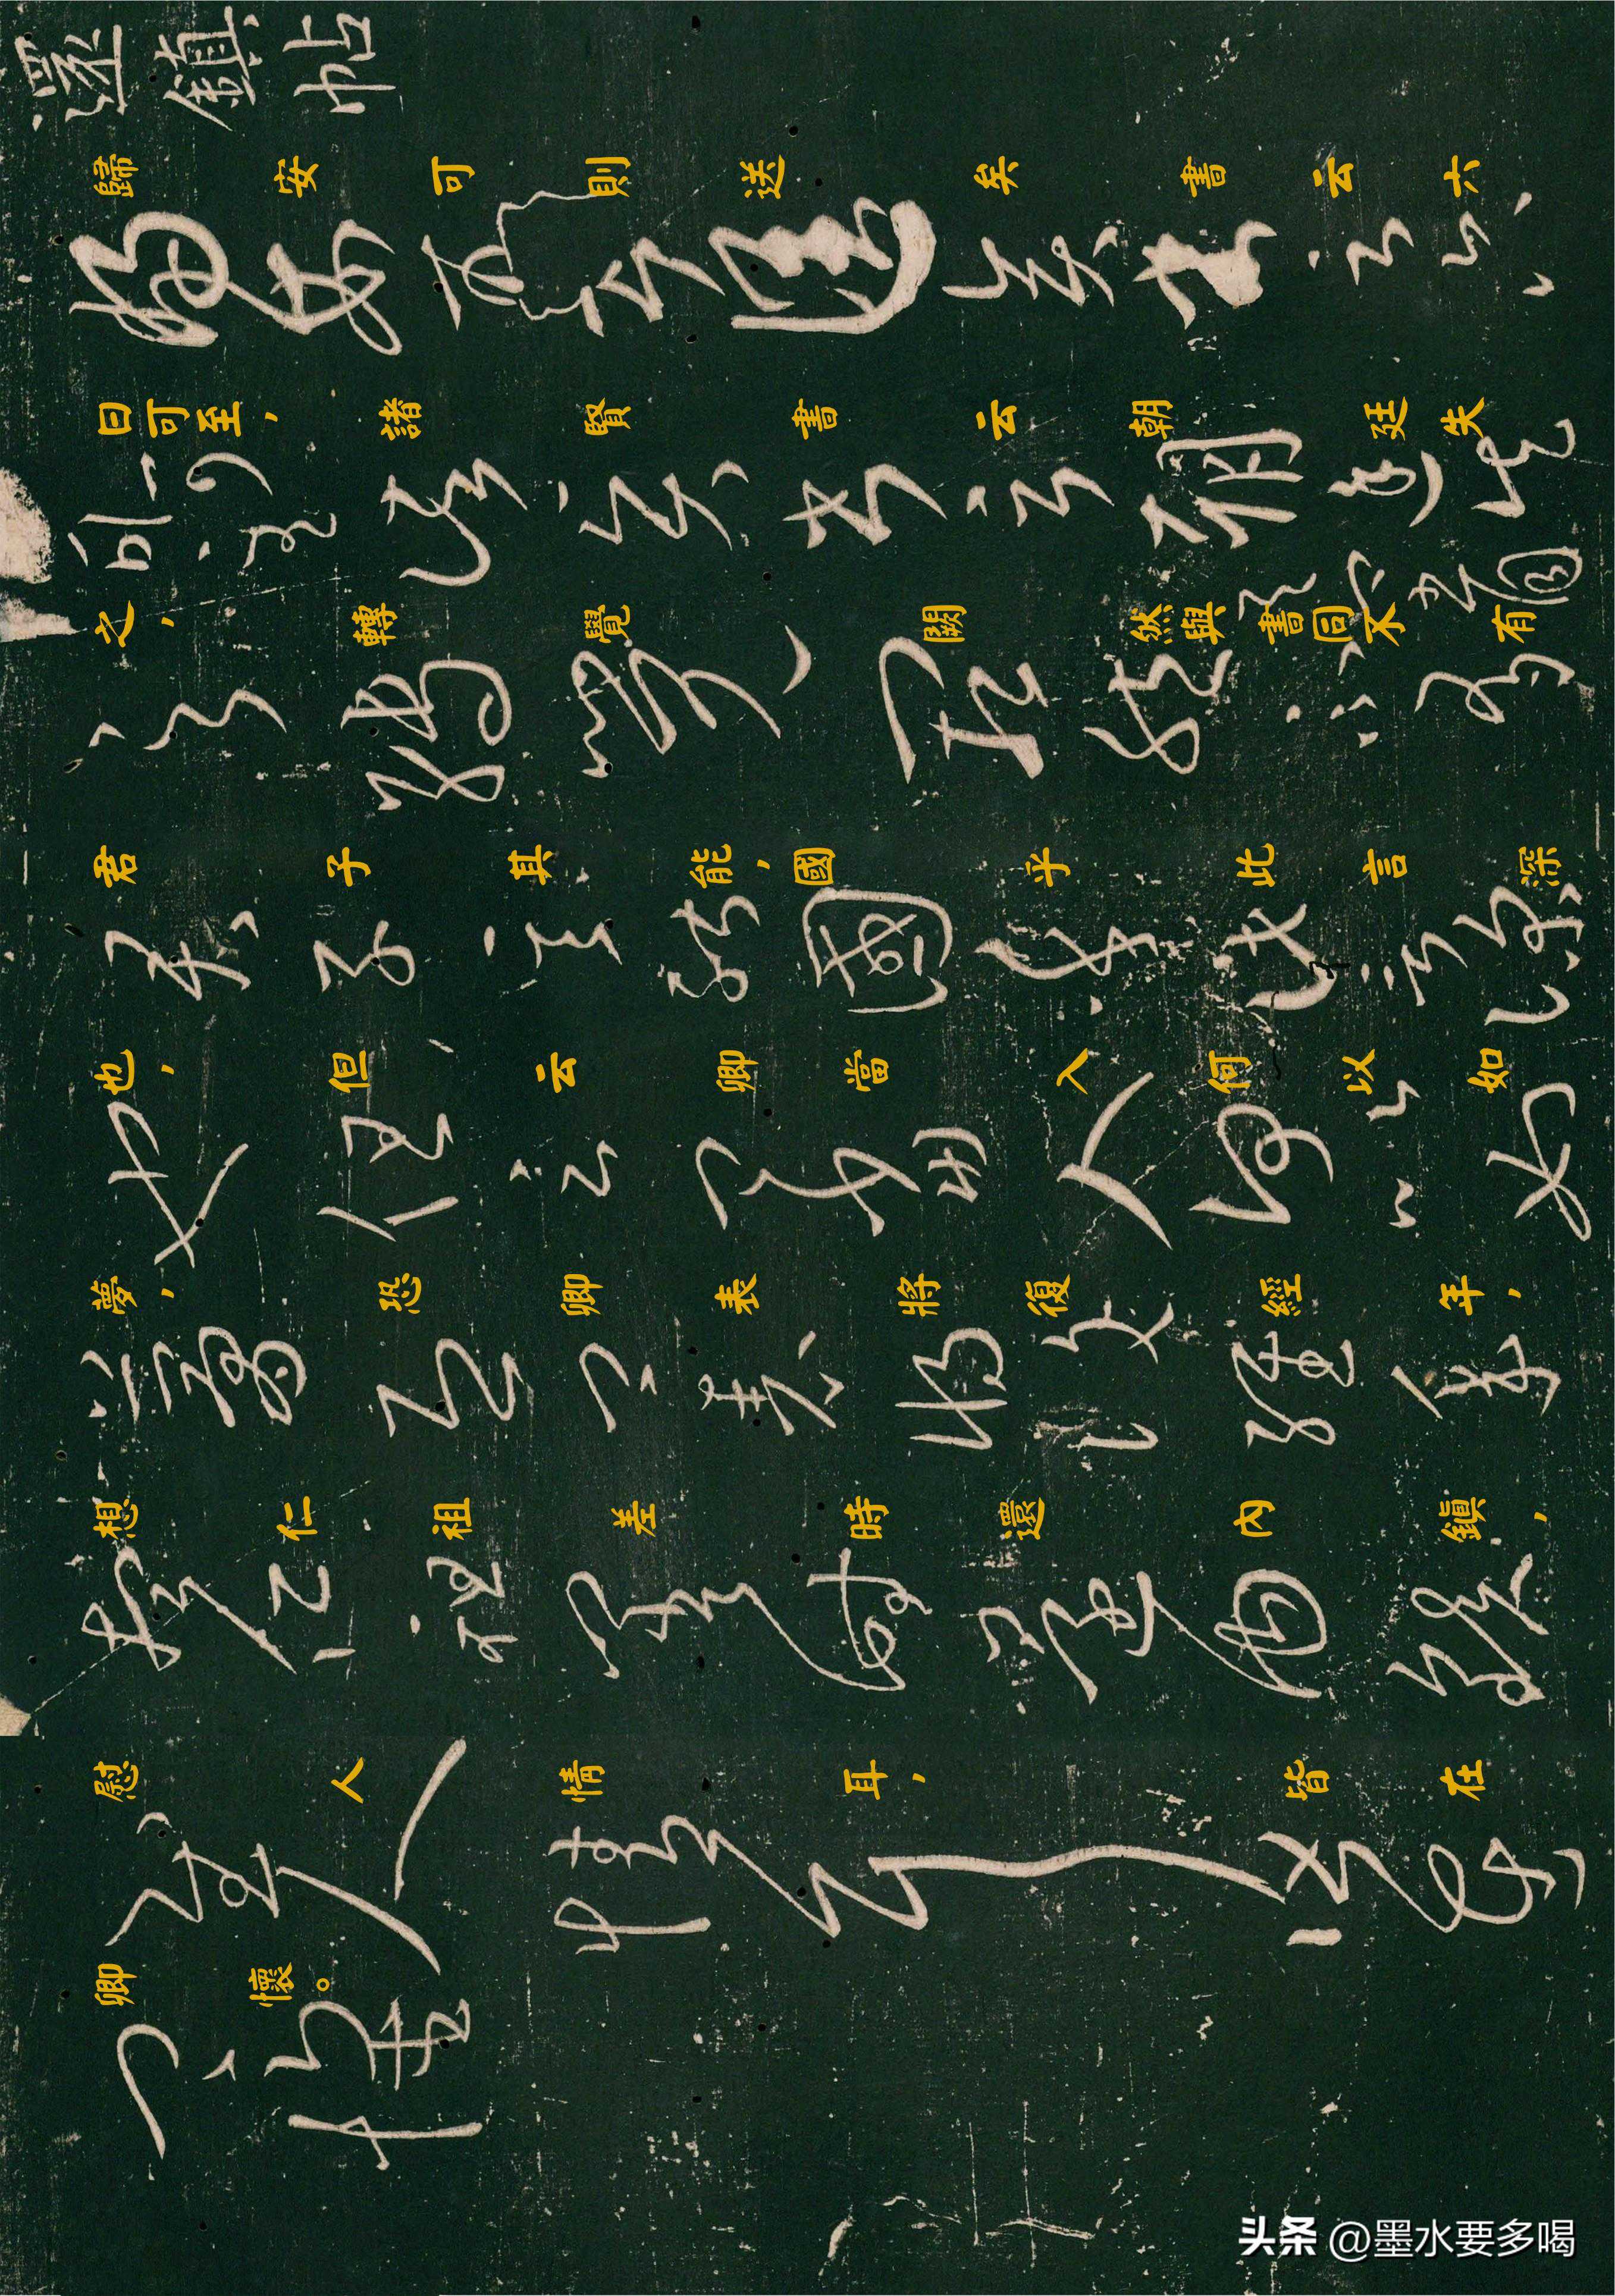 還鎮帖
歸安可則送矣書云六
日可至，諸賢書云朝廷失
之，轉覺闕然與書同不有
君子其能，國乎此言深
也，但云卿當人何以如
夢，恐卿表將復經年，
想仁祖差時還內鎮，
慰人情耳，皆在
卿懷。
头条 @墨水要多喝